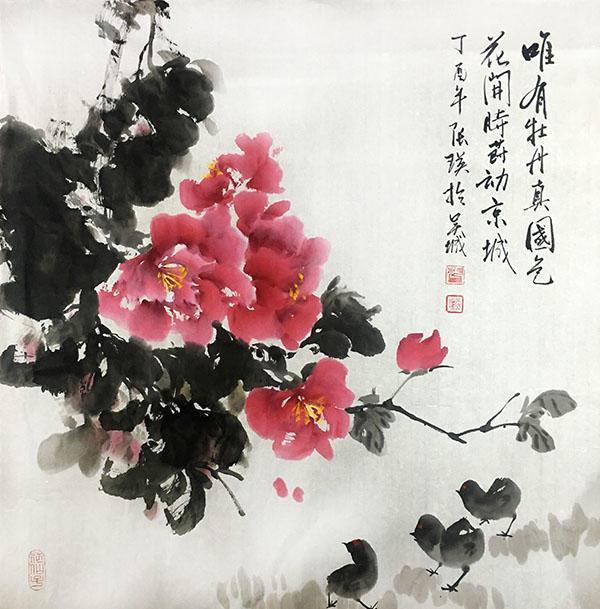 唯有牡丹真國色
花開時莭动京城
丁酉年张瑛於吴城